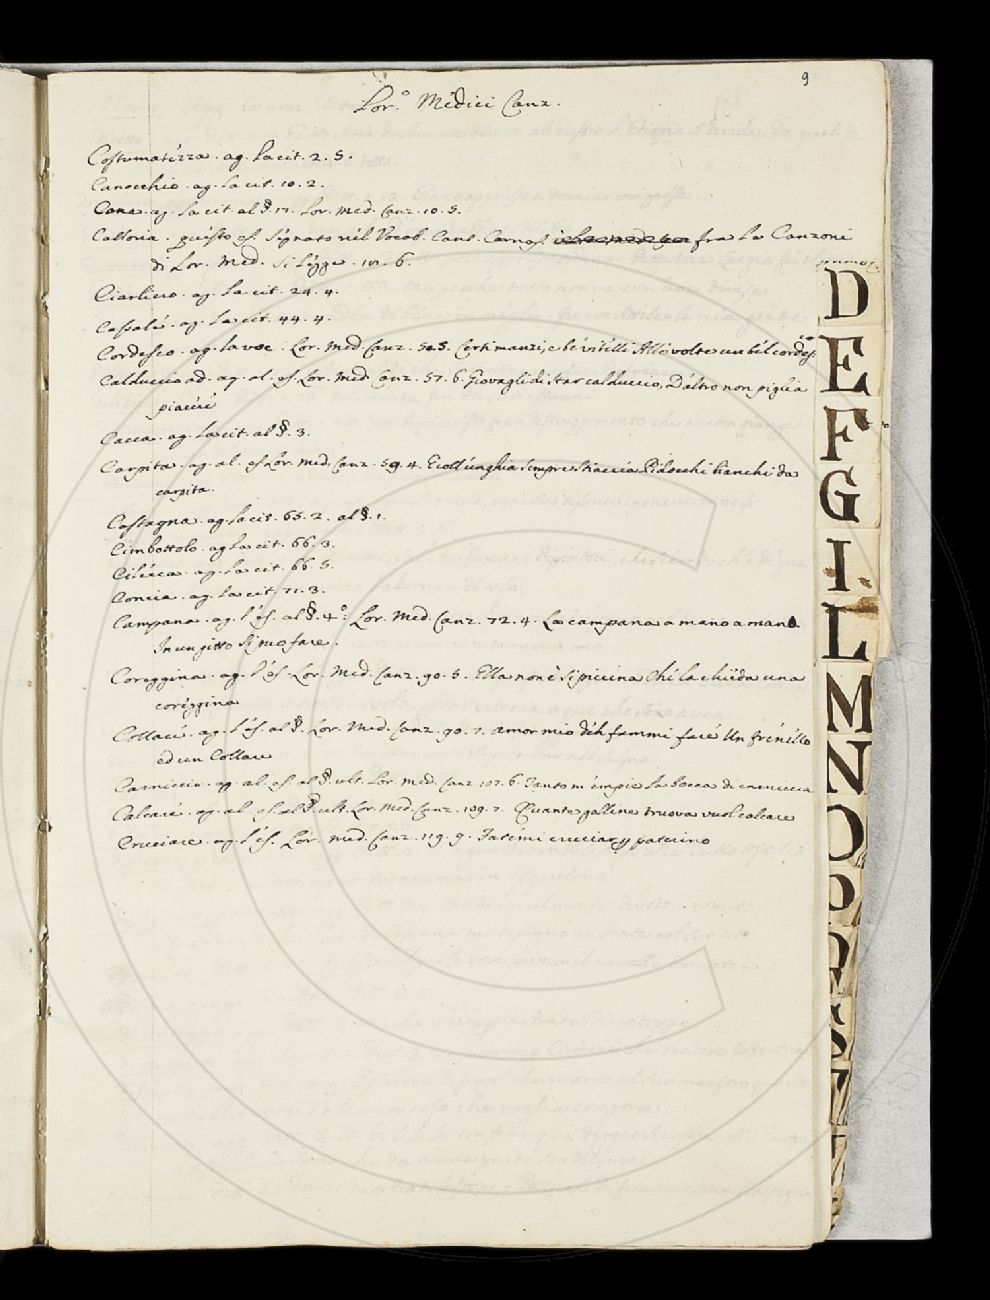 9
Lor.º Medici Canz.
Costumatezza. ag. la cit. 2. 5.
Canocchio. ag. la cit. 10. 2.
Cane. ag. la cit. al §. 17. Lor. Med. Canz. 10. 5.
Calloria. questo es. segnato nel Vocab. Cant. Carnas. fra le Canzoni
di Lor. Med. si legge. 6.
Ciarliero. ag. la cit. 24. 4.
ag. la cit. 44. 4.
Cordesco. ag. la voc. Lor. Med. Canz. 50. 5. Certi manzi, e be vitelli Alle volte un bel cordesco
Calduccio ad. ag. al. es. Lor. Med. Canz. 57. 6. Giovagli di star calduccio, D'altro non piglia
piacere
Cacca. ag. la cit. al §. 3.
Carpita. ag. al. es. Lor. Med. Canz. 59. 4. E coll'unghia sempre stiaccia Pidocchi bianchi da
carpita.
Castagna. ag. la cit. 65. 2. al §. 1.
Cimbottolo. ag. la cit. 66. 3.
Cilecca. ag. la cit. 66. 5.
Concia. ag. la cit. 71. 3.
Campana. ag. l'es. al §. 4º: Lor. Med. Canz. 72. 4. La campana a mano a mano
In un gitto si può fare.
Coreggina. ag. l'es. Lor. Med. Canz. 90. 5. Ella non è sì piccina Che la chiuda una
coreggina
Collare. ag. l'es. al §. Lor. Med. Canz. 90. 7. Amor mio deh fammi fare Un frenello
ed un Collare
Camiccio. ag. al. es. al §. ult. Lor. Med. Canz. 107. 6. Tanto m'empie la bocca di
Calcare. ag. al. es. al §. ult. Lor. Med. Canz. 109. 7. Quante galline truova vuol calcare
Cruciare. ag. l'es. Lor. Med. Canz. 119. 9. Fatemi cruciar paterino
D
E
F
G
I
L
M
N
O
P
Q